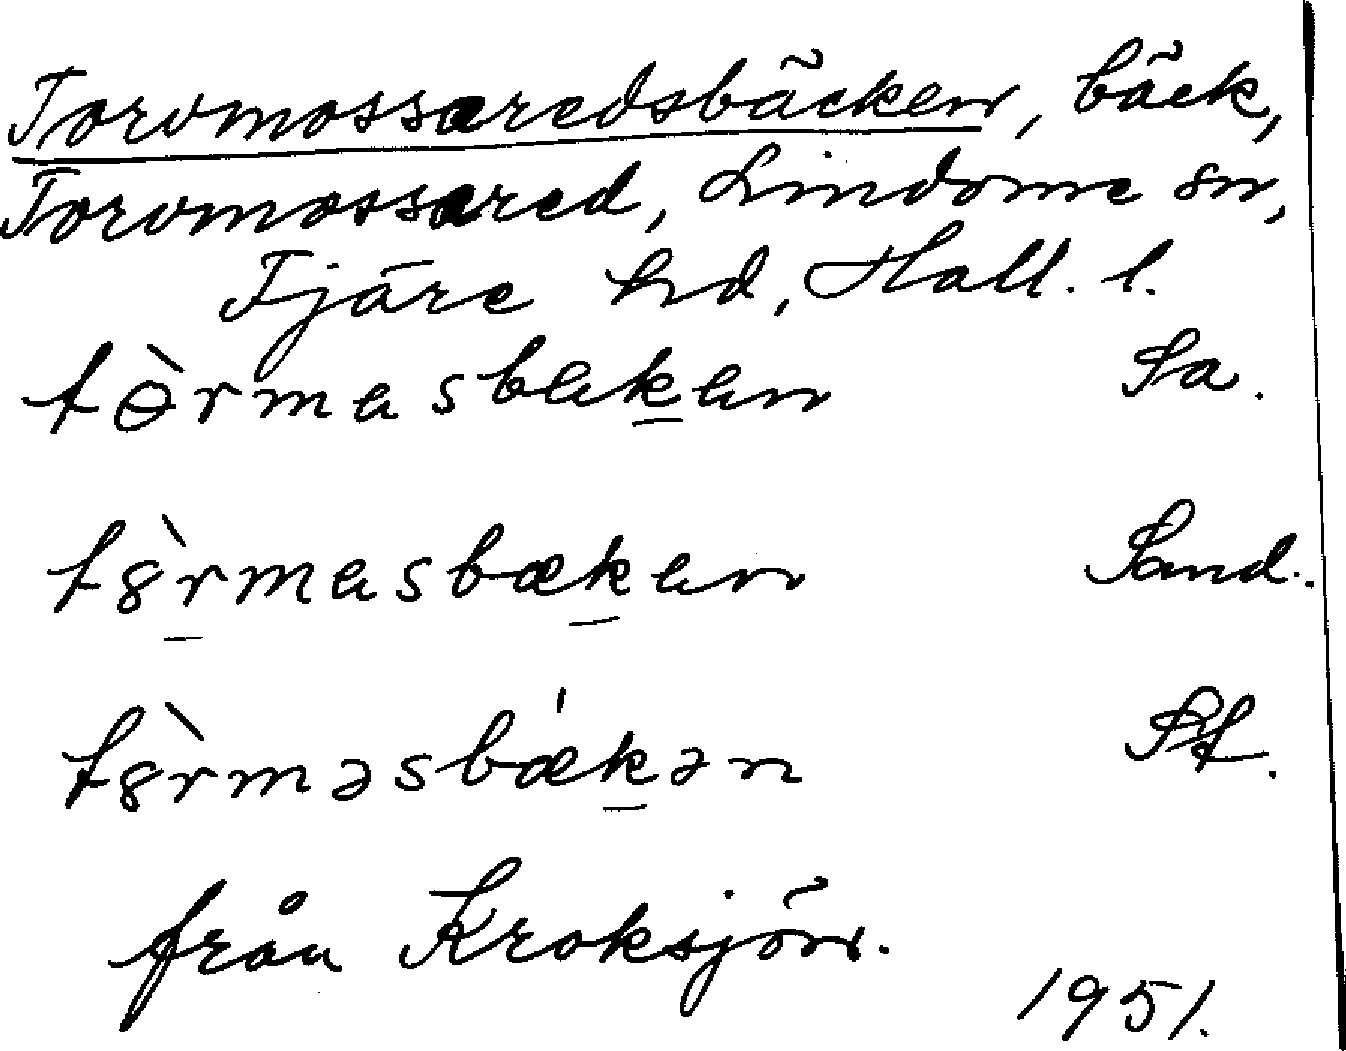 Torvmossaredsbäcken, bäck,
Torvmossared, Lindome sn,
Fjäre hd, Hall. l.
tɵ̀rmasbak̲an Sa.
t8r̲̀masbæk̲an Sand.
t8r̀məsbæ̍k̲ən Pf.
från Kroksjön.
1951.